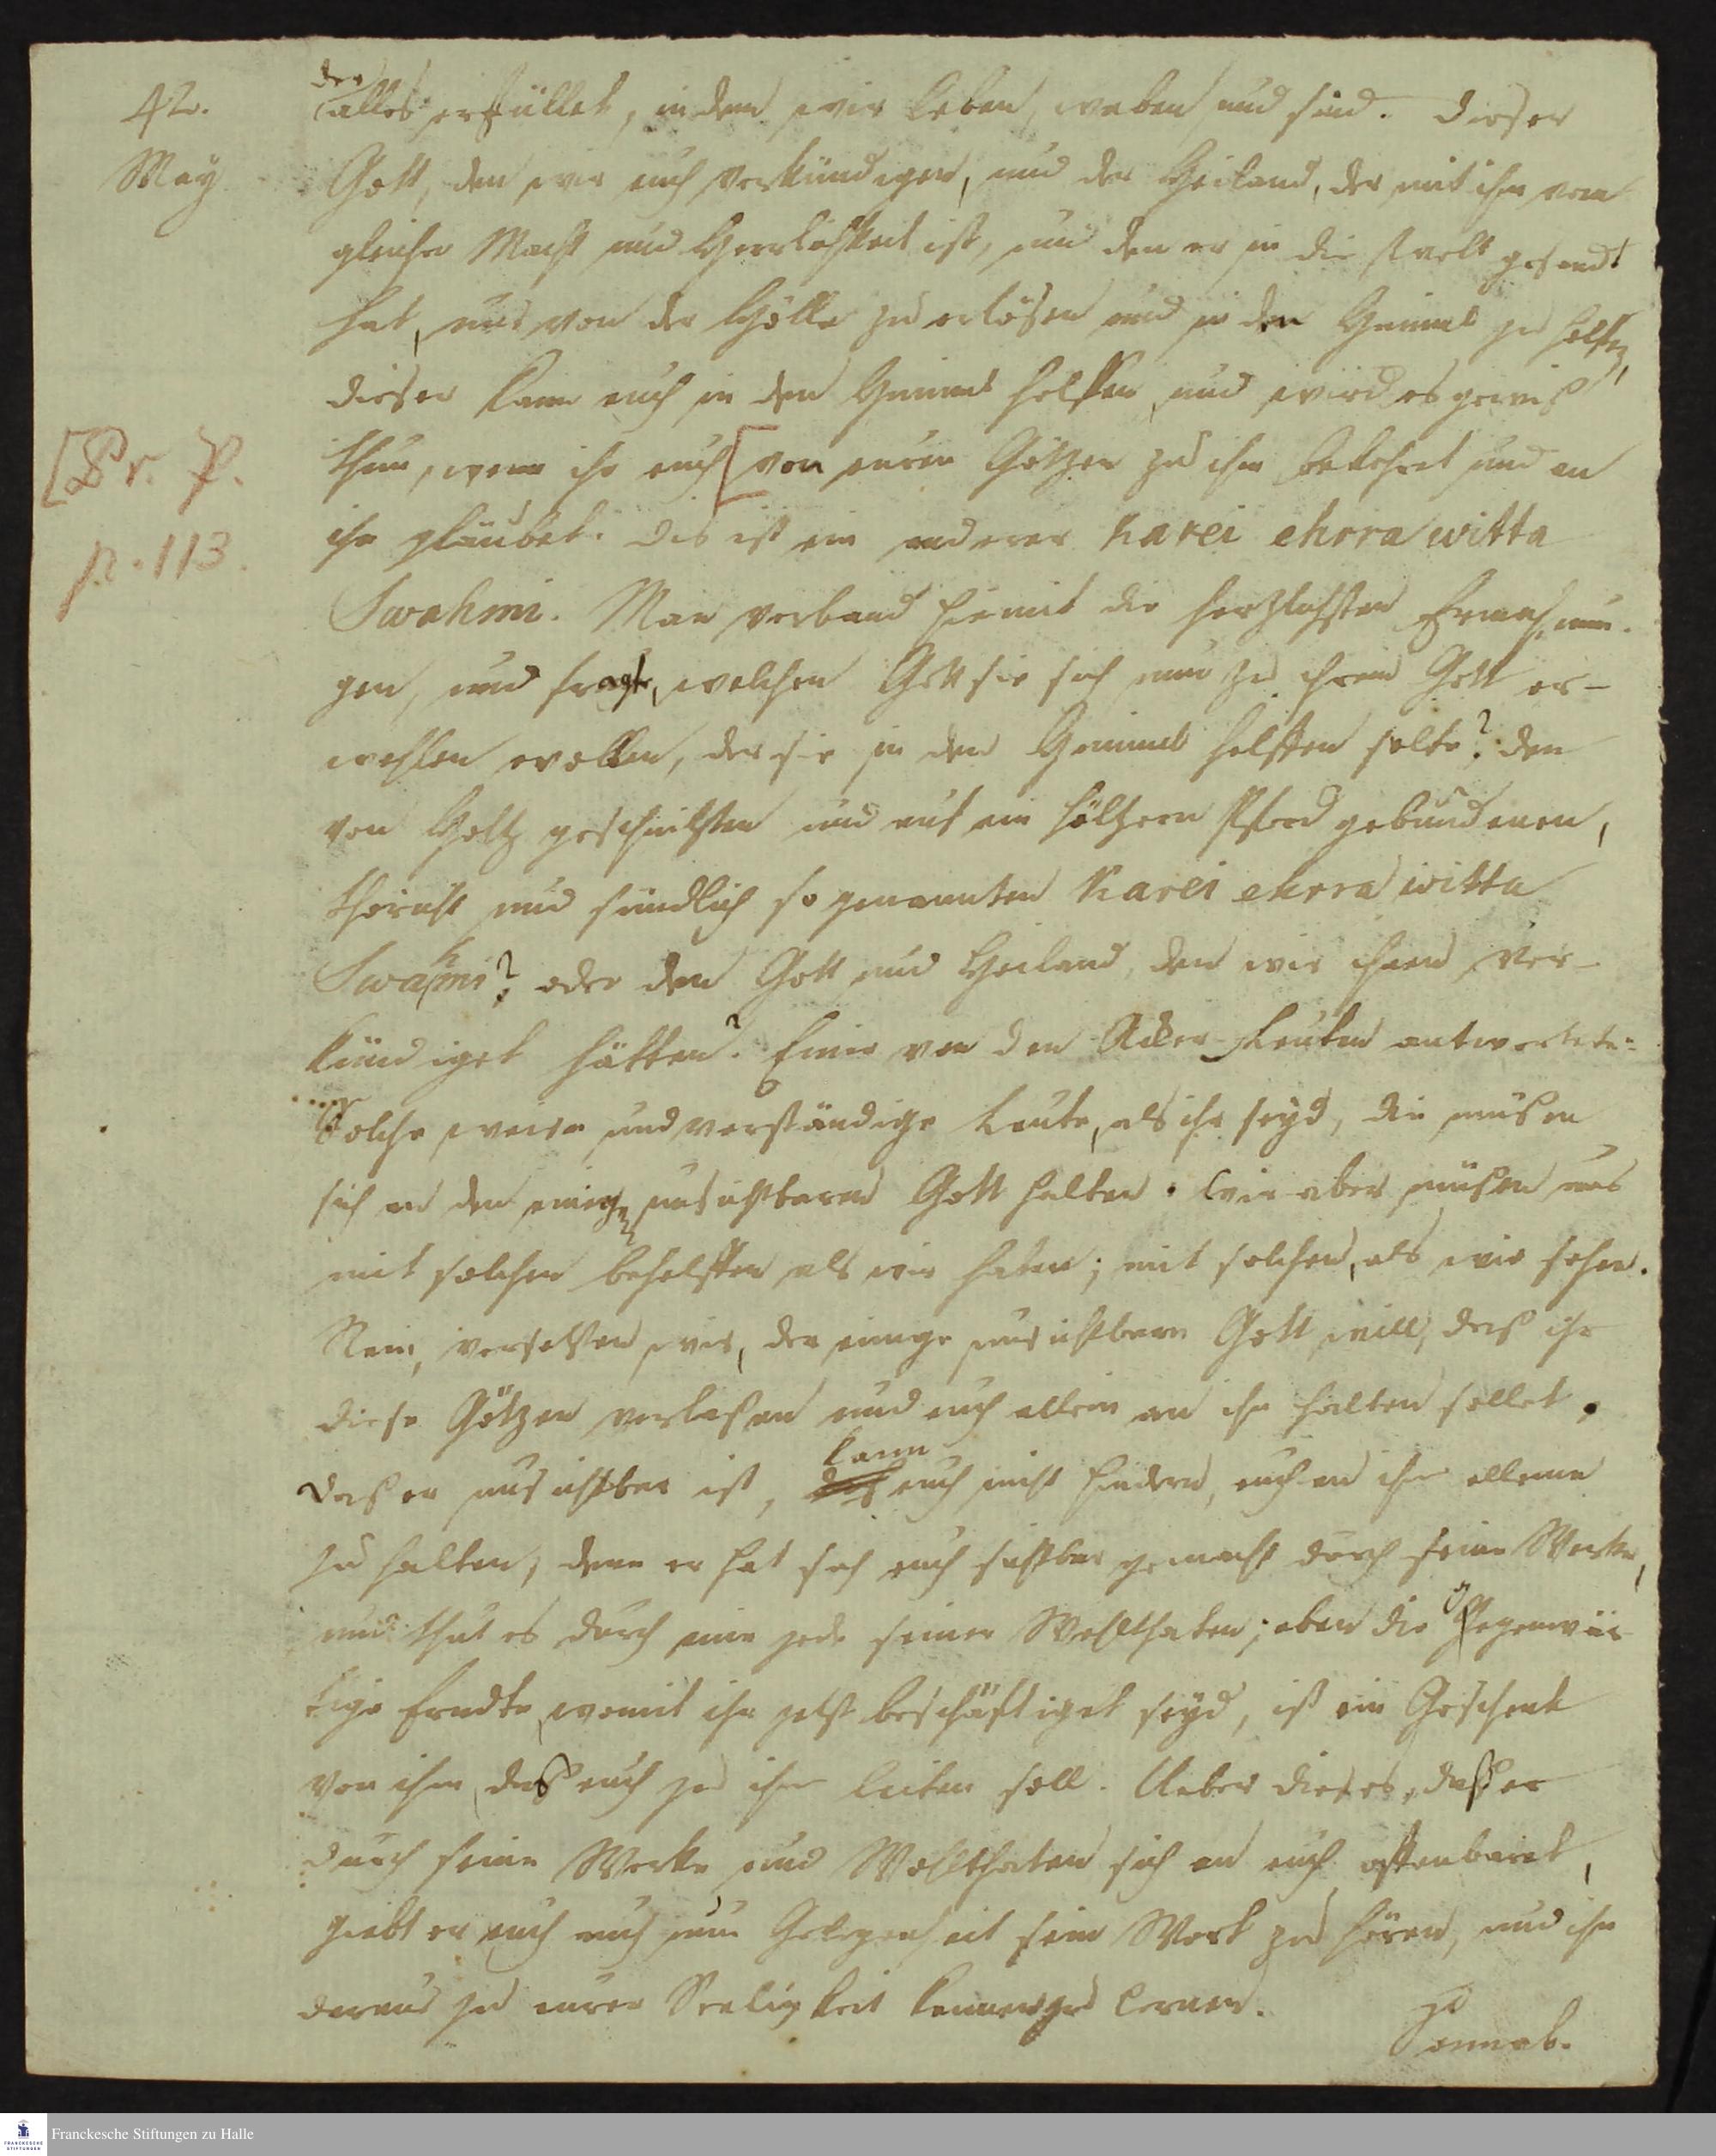 42.
May
[Pr. P.
p. 113.
der
alles erfüllet, in dem wir leben, weben und sind. Dieser
Gott, den wir euch verkündigen, und der Heiland, der mit ihm von
gleicher Macht und Herrlichkeit ist, und den er in die Welt gesandt
hat, uns von der Hölle zu erlösen und in den Himmel zu helffen,
dieser kann euch in den Himmel helffen, und wird es gewiß
thun, wenn ihr euch [von euren Götzen zu ihm bekehret und an
ihn gläubet. Dis ist ein anderer Karei ehora witta
Swahmi. Man verband hiemit die herzlichsten Ermahnun-
gen, und fragte, welchen Gott sie sich nun zu ihrem Gott er-
wehlen wollen, der sie in den Himmel helffen solte? den
von Holtz geschnitzten und auf ein höltzern Pferd gebundenen,
thöricht und sündlich so genannten Karei ehora witta
Swahmi? oder den Gott und Heiland, den wir ihnen ver-
kündiget hätten? Einer von den Acker-Leuten antwortete:
Solche weise und verständige Leute, als ihr seyd, die müßen
sich an den einigen unsichtbaren Gott halten. Wir aber müßen uns
mit solchen behelffen als wir haben; mit solchen, als wir sehen.
Nein, versetzten wir, der einige unsichtbare Gott will, daß ihr
diese Götzen verlaßen und euch allein an ihn halten sollet.
Daß er unsichtbar ist, kann euch nicht hindern, euch an ihn alleine
zu halten; denn er hat sich euch sichtbar gemacht durch seine Werke,
und thut es durch eine jede seiner Wohlthaten; eben die gegenwär-
tige Erndte, womit ihr jetzt beschäftiget seyd, ist ein Geschenk
von ihm, das euch zu ihm leiten soll. Ueber dieses, daß er
durch seine Werke und Wohlthaten sich an euch offenbaret,
giebt er euch auch nun Gelegenheit sein Wort zu hören, und ihn
daraus zu eurer Seeligkeit kennen zu lernen.
Sonnab.
Franckesche Stiftungen zu Halle